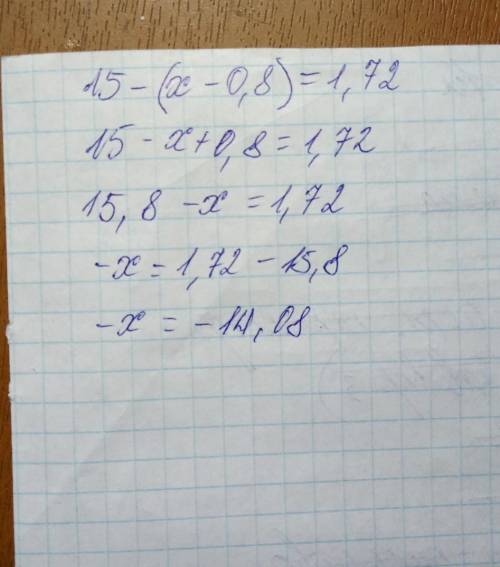 15 - (x - 0,8) = 1,72
15 - x + 0,8 = 1,72
15,8 - x = 1,72
-x = 1,72 - 15,8
-x = -14,08